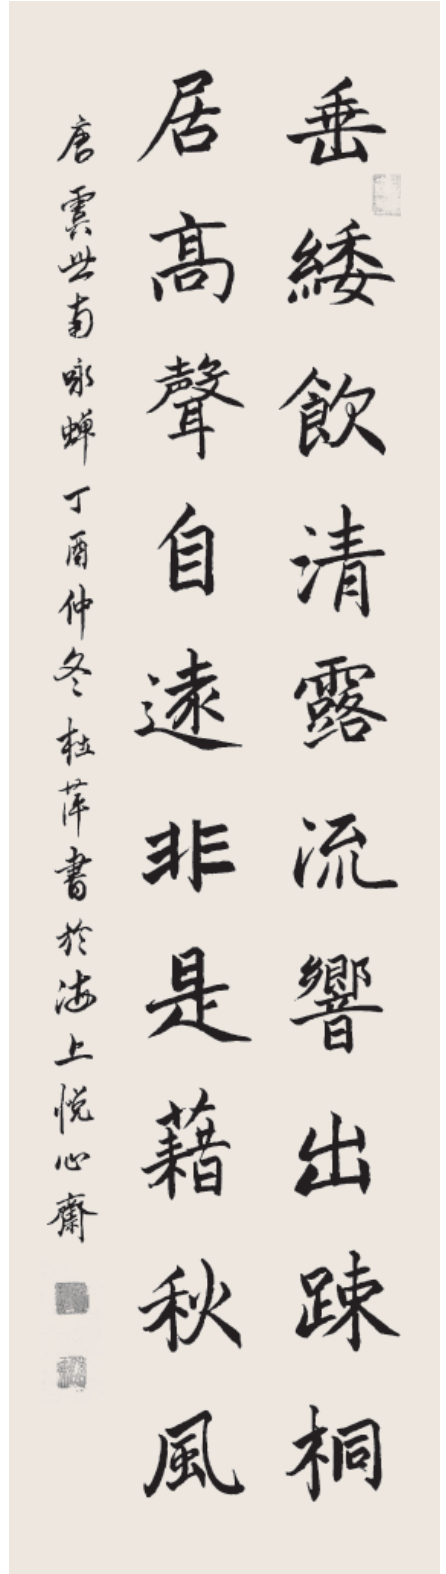 垂緌飲清露流響出踈桐
居高聲自遠非是藉秋風
唐虞世南咏蝉丁酉仲冬杜萍書於海上悦心齋